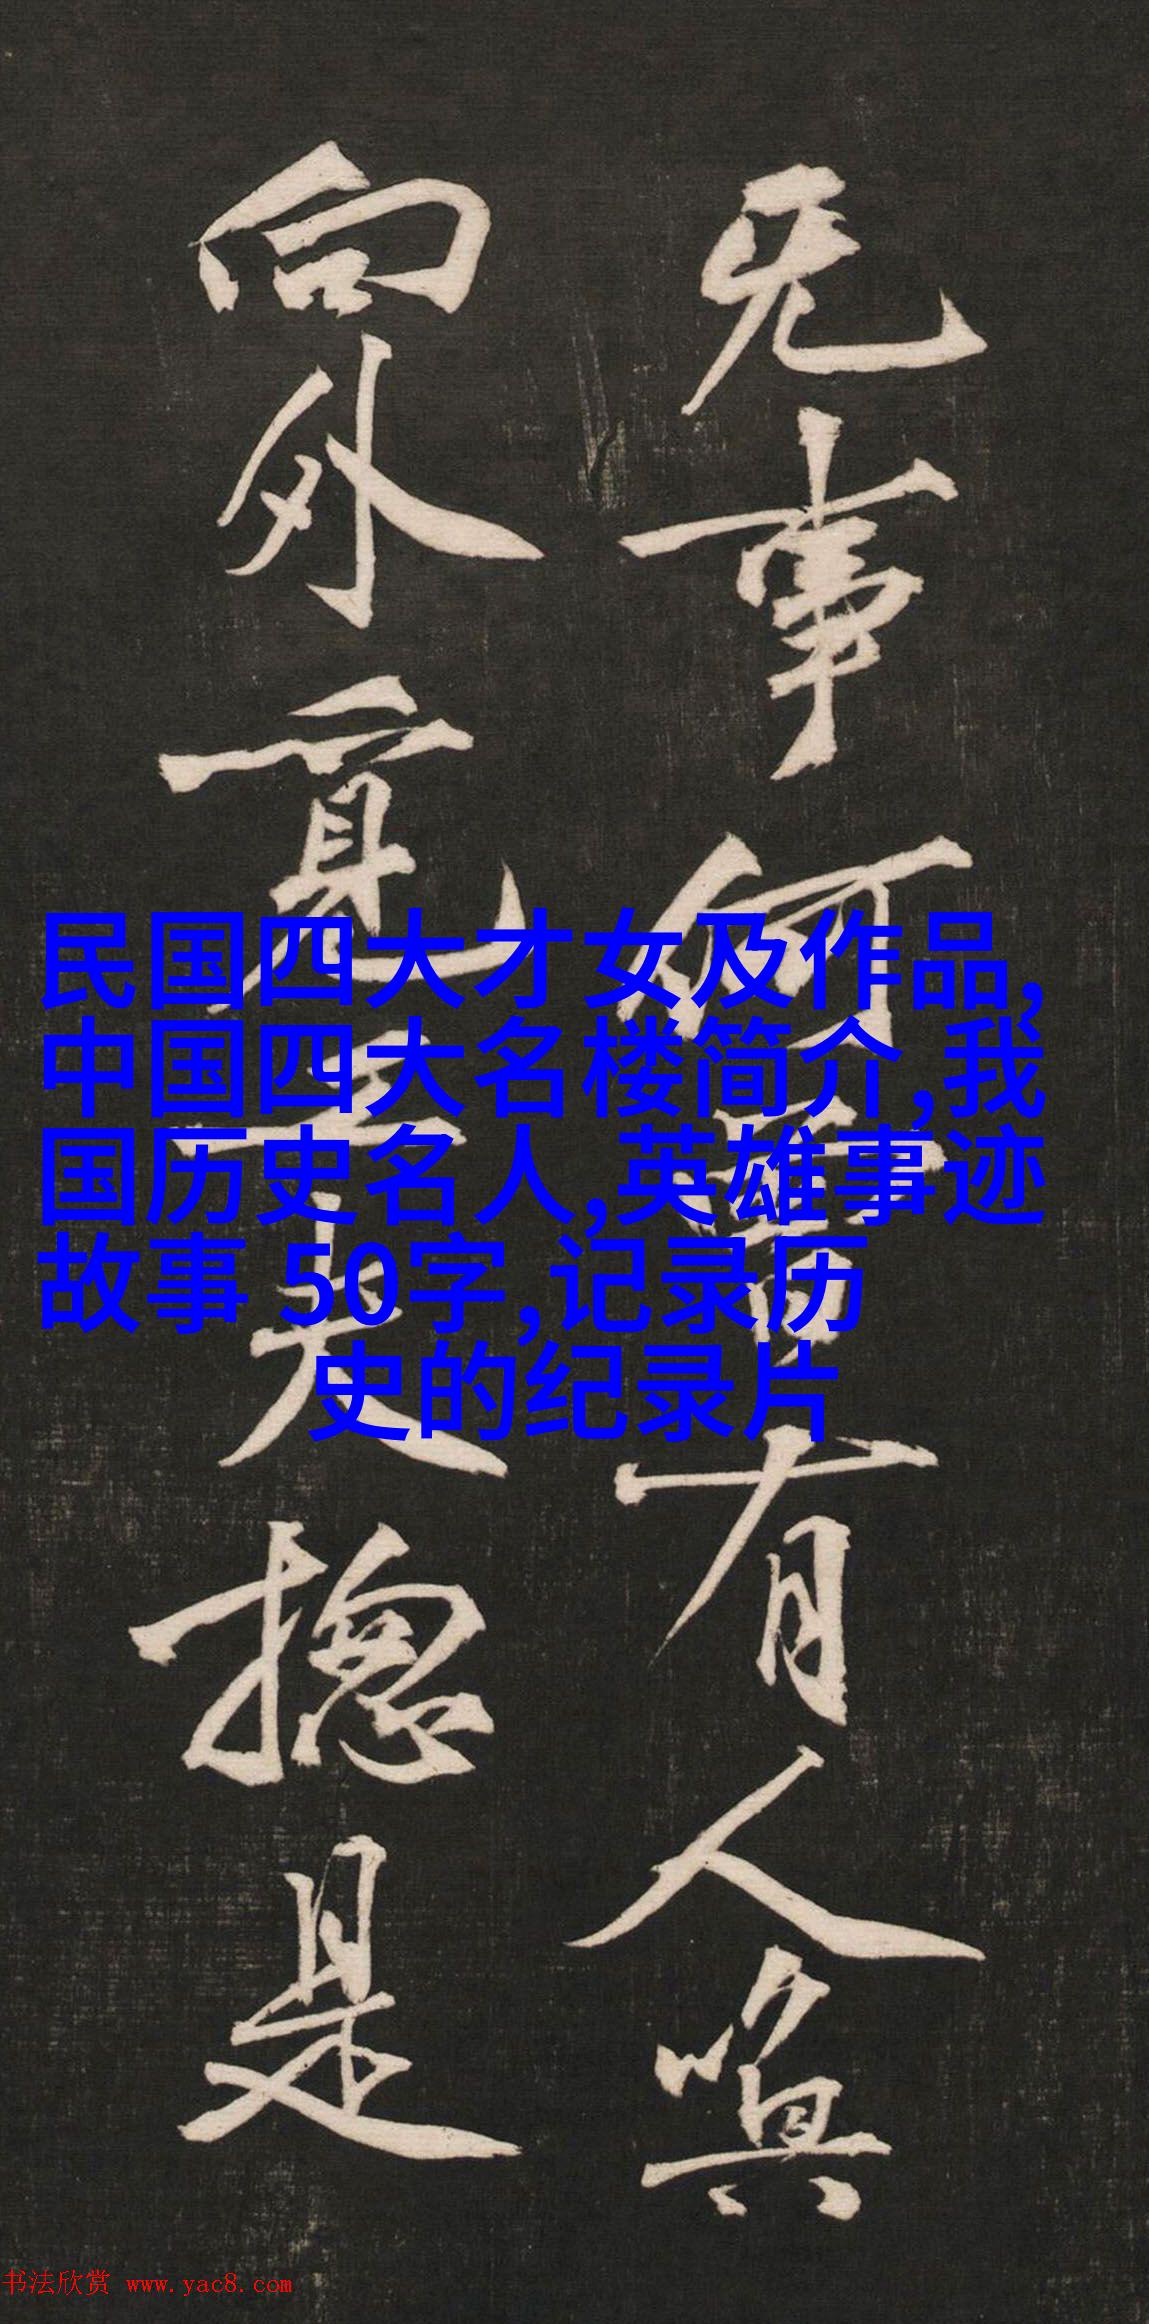 无事何有人喚
向外覓工夫摠是
民国四大才女及作品,
中国四大名楼简介,我
国历史名人,英雄事迹
故事 50字,记录历
史的纪录片
书法欣赏 www.yac8.com